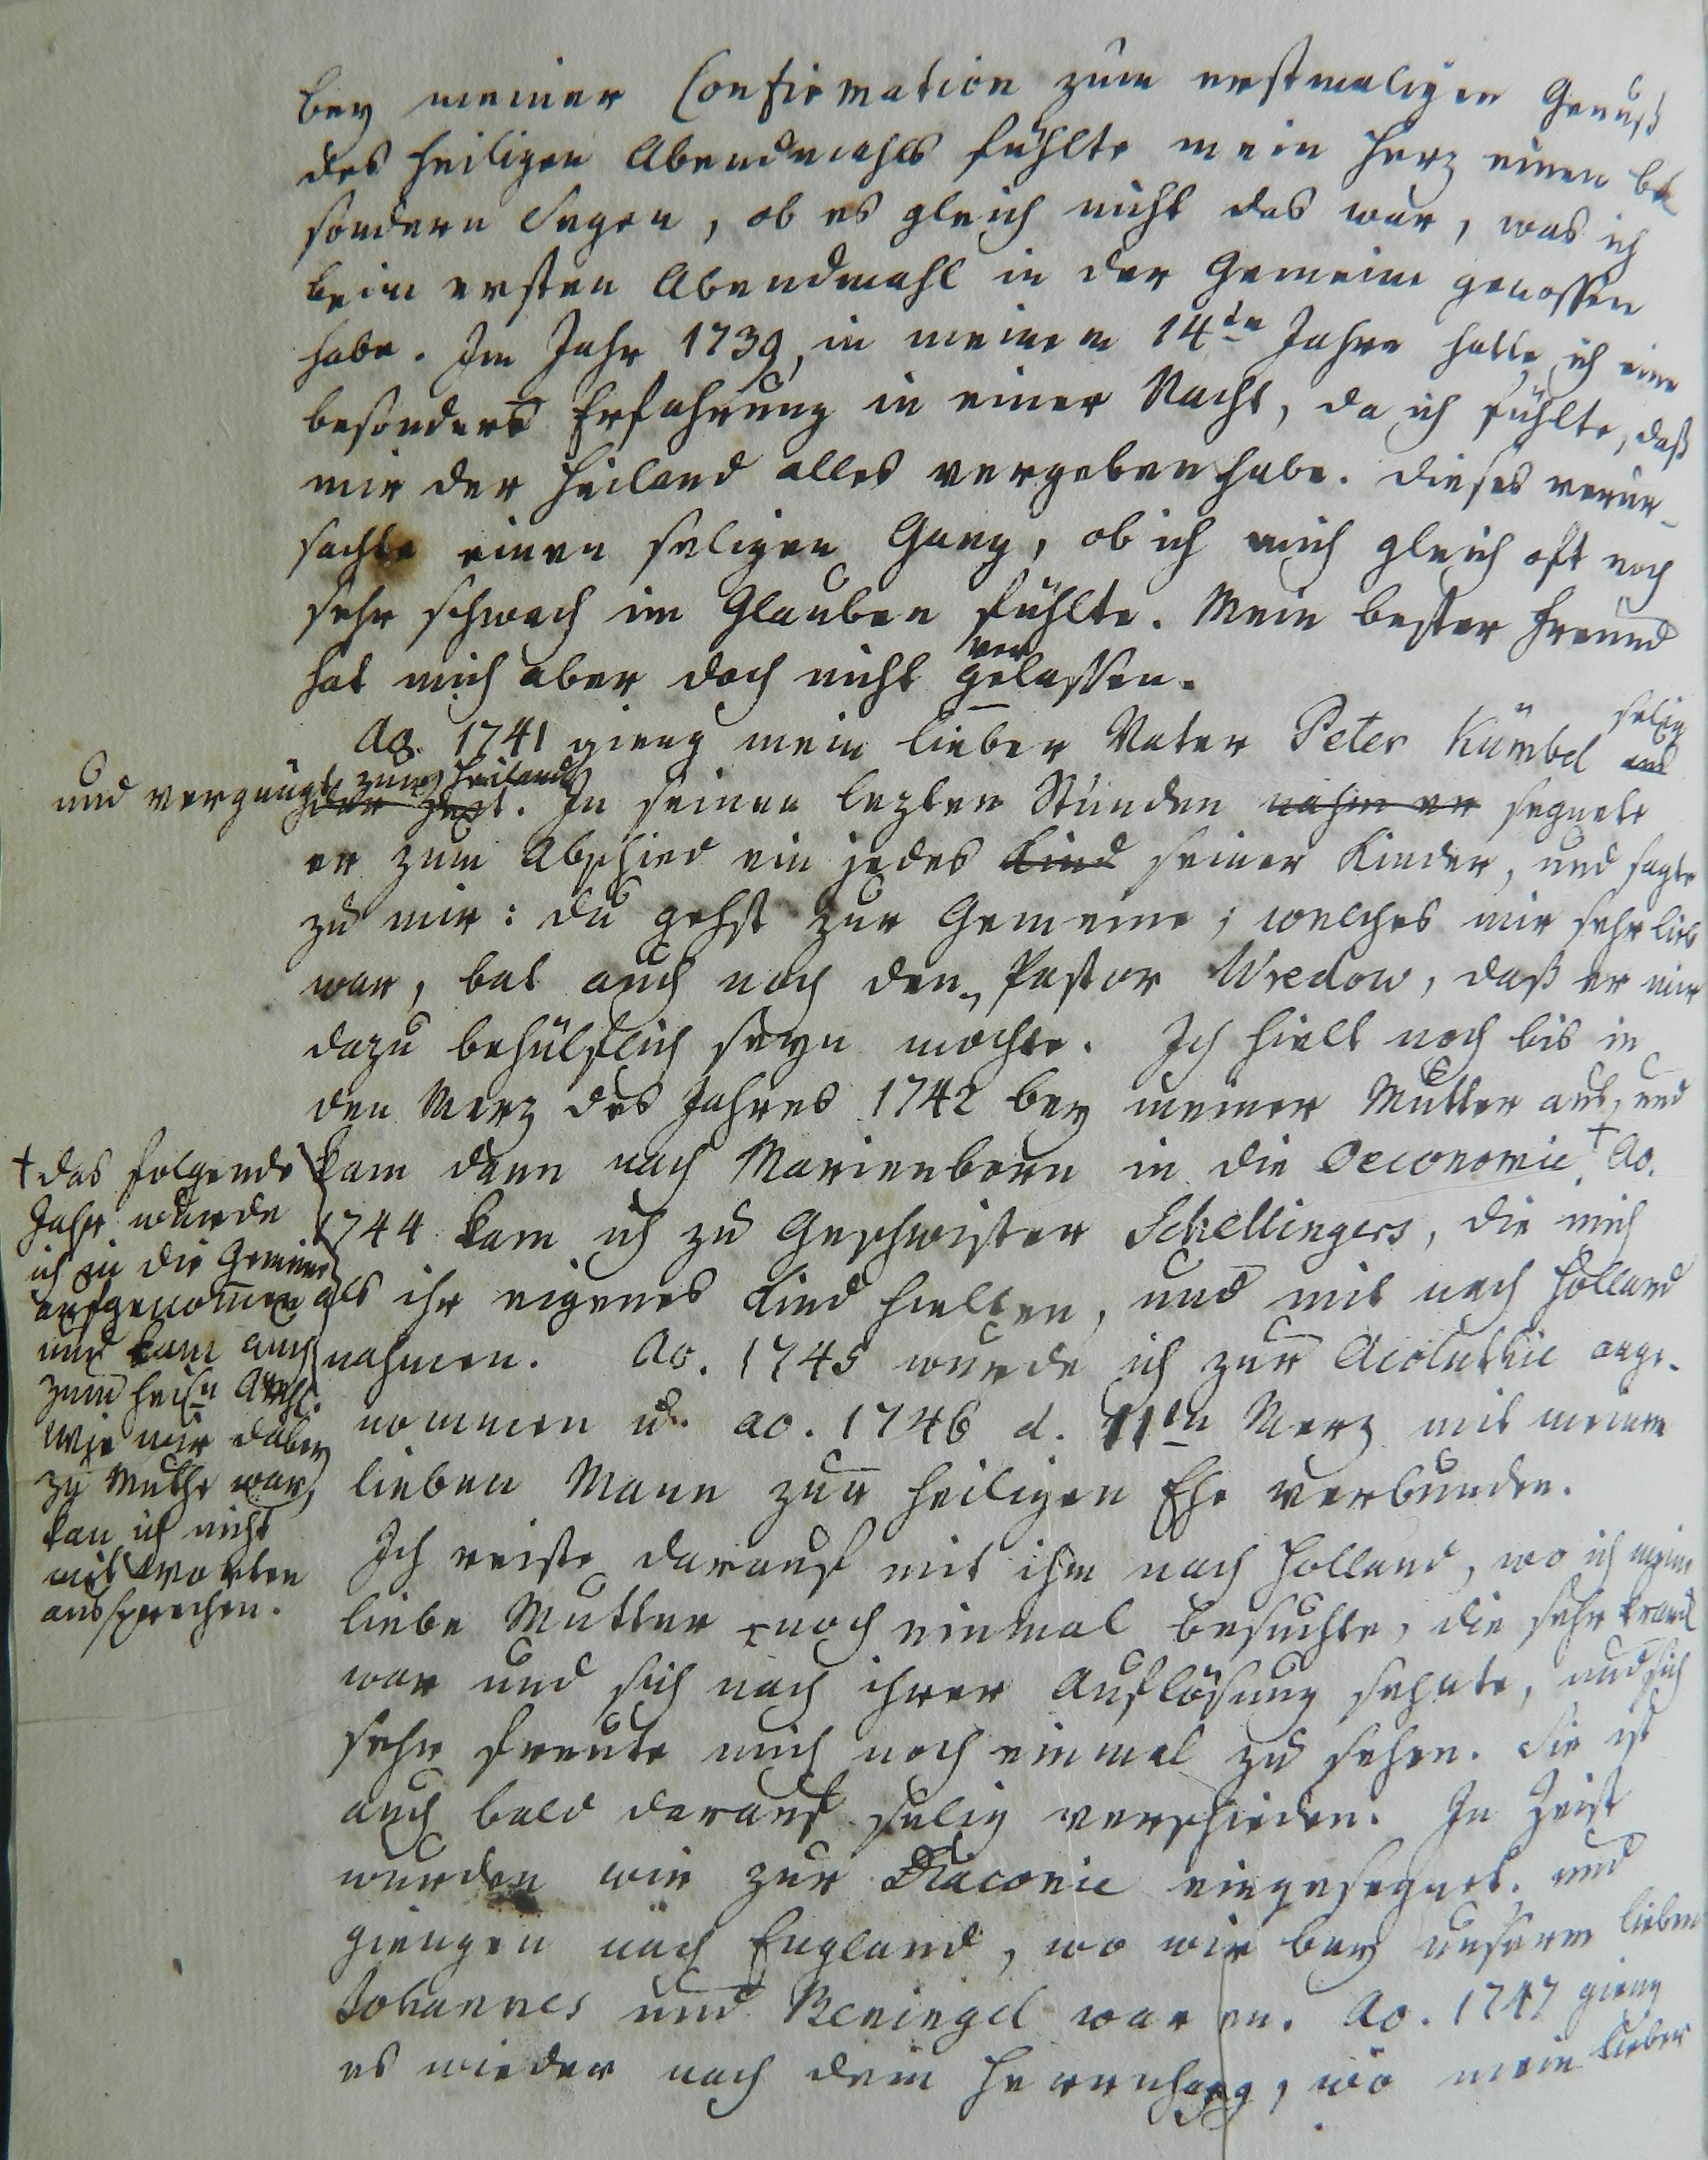 bey meiner Confirmation zum erstmaligen Genuß
des heiligen Abendmahls fühlte mein Herz einen be
sondern Segen, ob es gleich nicht das war, was ich
beim ersten Abendmahl in der Gemeine genossen
habe. Im Jahr 1739, in meinem 14ten Jahre hatte ich eine
besondere Erfahrung in einer Nacht, da ich fühlte, daß
mir der Heiland alles vergeben habe. Dieses verur-
sachte einen seligen Gang, ob ich mich gleich oft noch
sehr schwach im Glauben fühlte. Mein bester Freund
hat mich aber doch nicht gelassen.
ver
Ao. 1741 gieng mein lieber Vater Peter Kümbel selig
und vergnügt zum Heiland. In seinen lezten Stunden nahm er segnete
er zum Abschied ein jedes Kind seiner Kinder, und sagte
zu mir: du gehst zur Gemeine; welches mir sehr lieb
war, bat auch noch den Pastor Wredow, daß er mir
dazu behülflich seyn möchte. Ich hielt noch bis in
den Merz des Jahres 1742 bey meiner Mutter aus, und
kam dann nach Marienborn in die Oeconomie. † Ao.
1744 kam ich zu Geschwister Schellingers, die mich
als ihr eigenes Kind hielten, und mit nach Holland
nahmen. Ao. 1745 wurde ich zur Acoluthie ange-
nommen u. ao. 1746 d. 11ten Merz mit meinem
lieben Mann zur heiligen Ehe verbunden.
Ich reiste darauf mit ihm nach Holland, wo ich meine
liebe Mutter noch einmal besuchte, die sehr krank
war und sich nach ihrer Auflösung sehnte, und sich
sehr freute mich noch einmal zu sehen. Sie ist
auch bald darauf selig verschieden. In Zeist
wurden wir zur Diaconie eingesegnet. und
giengen nach England, wo wir bey unserm lieben
Johannes und Beningel waren. Ao. 1747 gieng
es wieder nach dem Herrnhaag, wo mein lieber
† das folgende
Jahr wurde
ich in die Gemeine
aufgenommen
und kam auch
zum heiln Abdml.
wie mir dabey
zu Muthe war,
kan ich nicht
mit Worten
aussprechen.